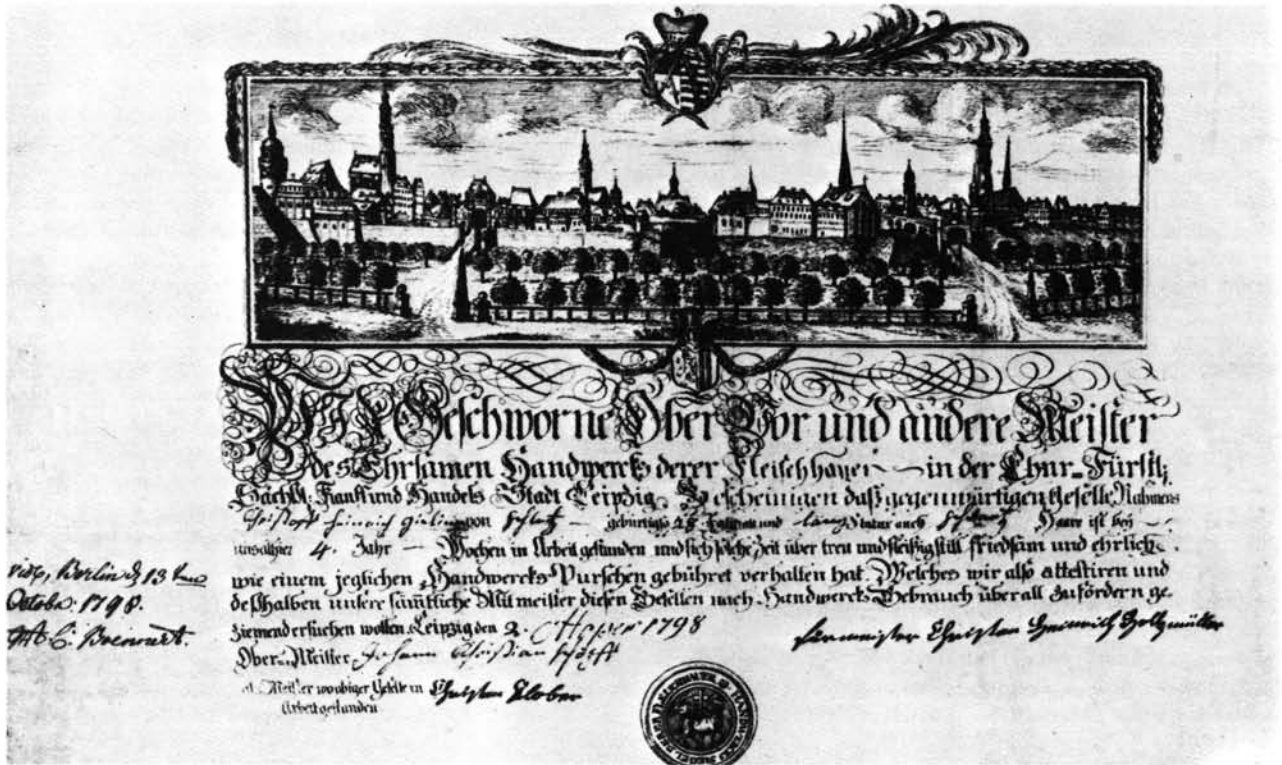 Wir Geschworne Ober Vor und andere Meister
des Ehrsamen Handwercks derer Fleischhauer in der Chur-Fürstl:
Sächß: Kauff und Handels Stadt Leipzig Bescheinigen daß gegenwärtiger Geselle, Nahmens
Christoph Heinrich von gebürtig 28 Jahr alt und lang Statur auch schwartz Haare ist bey
uns allhier 4. Jahr — Wochen in Arbeit gestanden und sich solche Zeit über treu und fleißig still friedsam und ehrlich
wie einem jeglichen Handwercks Purschen gebühret verhalten hat. Welches wir also attestiren und
deßhalben unsere sämtliche Mitmeister diesen Gesellen nach Handwercks Gebrauch überall zufördern ge-
ziemend ersuchen wollen. Leipzig den 2. October 1798
Ober-Meister Johann Christian
Christian Heinrich
Meister wo obiger Geselle in Christian Klober
Arbeit gestanden
Berlin d 13
Octobr. 1798.